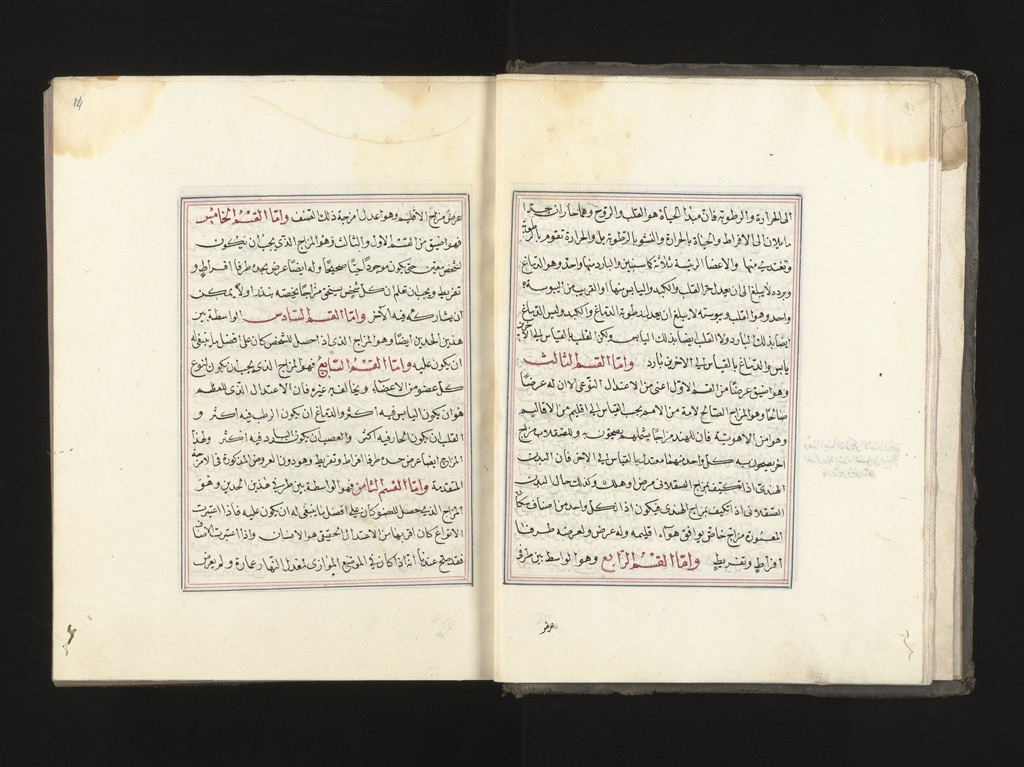 الى الحرارة والرطوبة فان مبدا الحياة هو القلب والروح وهما حاران جدا
مايلان الى الافراط والحياة بالحرارة والنشو بالرطوبة بل والحرارة تقوم بالرطوبة
وتغتذي منها والاعضا الرئيسة ثلاثة كما سنبين والبارد منها واحد وهو الدماغ
وبرده لا يبلغ الى ان يعدل حر القلب والكبد واليابس منها او القريب من اليبوسة
واحد وهو القلب ويبوسته لا يبلغ ان يعدل رطوبة الدماغ والكبد وليس الدماغ
ايضا بذلك البارد ولا القلب ايضا بذلك اليابس ولكن القلب بالقياس الى الآخر
يابس والدماغ بالقياس الى الآخرين بارد واما القسم الثالث
وهو اضيق عرضا من القسم الاول اعنى من الاعتدال النوعى الا ان له عرضا
صالحا وهو المزاج الصالح لامة من الامم بحسب القياس الى اقليم من الاقاليم
وهوا من الاهوية فان للهند مزاجا يشملهم يصحون به وللصقلاب مزاج
اخر يصحون به كل واحد منهما معتدل بالقياس الى الآخر فان البدن
الهندى اذا تكيف بمزاج الصقلابى مرض او هلك وكذلك حال البدن
الصقلابى اذا تكيف بمزاج الهندى فيكون اذا لكل واحد من اصناف سكان
المعمور مزاج خاص يوافق هواء اقليمه وله عرض ولعرضه طرفا
افراط وتفريط واما القسم الرابع وهو الواسط بين طرفى
عرض
14
عرض مزاج الاقليم وهو اعدل امزجة ذلك الصنف واما القسم الخامس
فهو اضيق من القسم الاول والثالث وهو المزاج الذى يجب ان يكون
لشخص معين حتى يكون موجودا حيا صحيحا وله ايضا عرض يحده طرفا افراط و
تفريط ويجب ان تعلم ان كل شخص يستحق مزاجا يخصه يندر او لا يمكن
ان يشاركه فيه الآخر واما القسم السادس الواسطة بين
هذين الحدين ايضا وهو المزاج الذى اذا حصل للشخص كان على افضل ما ينبغى له
ان يكون عليه واما القسم السابع فهو المزاج الذى يجب ان يكون لنوع
كل عضو من الاعضاء ويخالف به غيره فان الاعتدال الذى للعظم
هو ان يكون اليابس فيه اكثر وللدماغ ان يكون الرطب فيه اكثر و
للقلب ان يكون الحار فيه اكثر وللعصب ان يكون البارد فيه اكثر ولهذا
المزاج ايضا عرض يحده طرفا افراط وتفريط وهو دون العروض المذكورة فى الامزجة
المتقدمة واما القسم الثامن فهو الواسطة بين طرفى هذين الحدين وهو
المزاج الذى اذا حصل للعضو كان على افضل ما ينبغى له ان يكون عليه فاذا اعتبرت
الانواع كان اقربها من الاعتدال الحقيقى هو الانسان واذا اعتبرت الاصناف
فقد صح عندنا انه اذا كان فى الموضع الموازى لمعدل النهار عمارة ولم يعرض